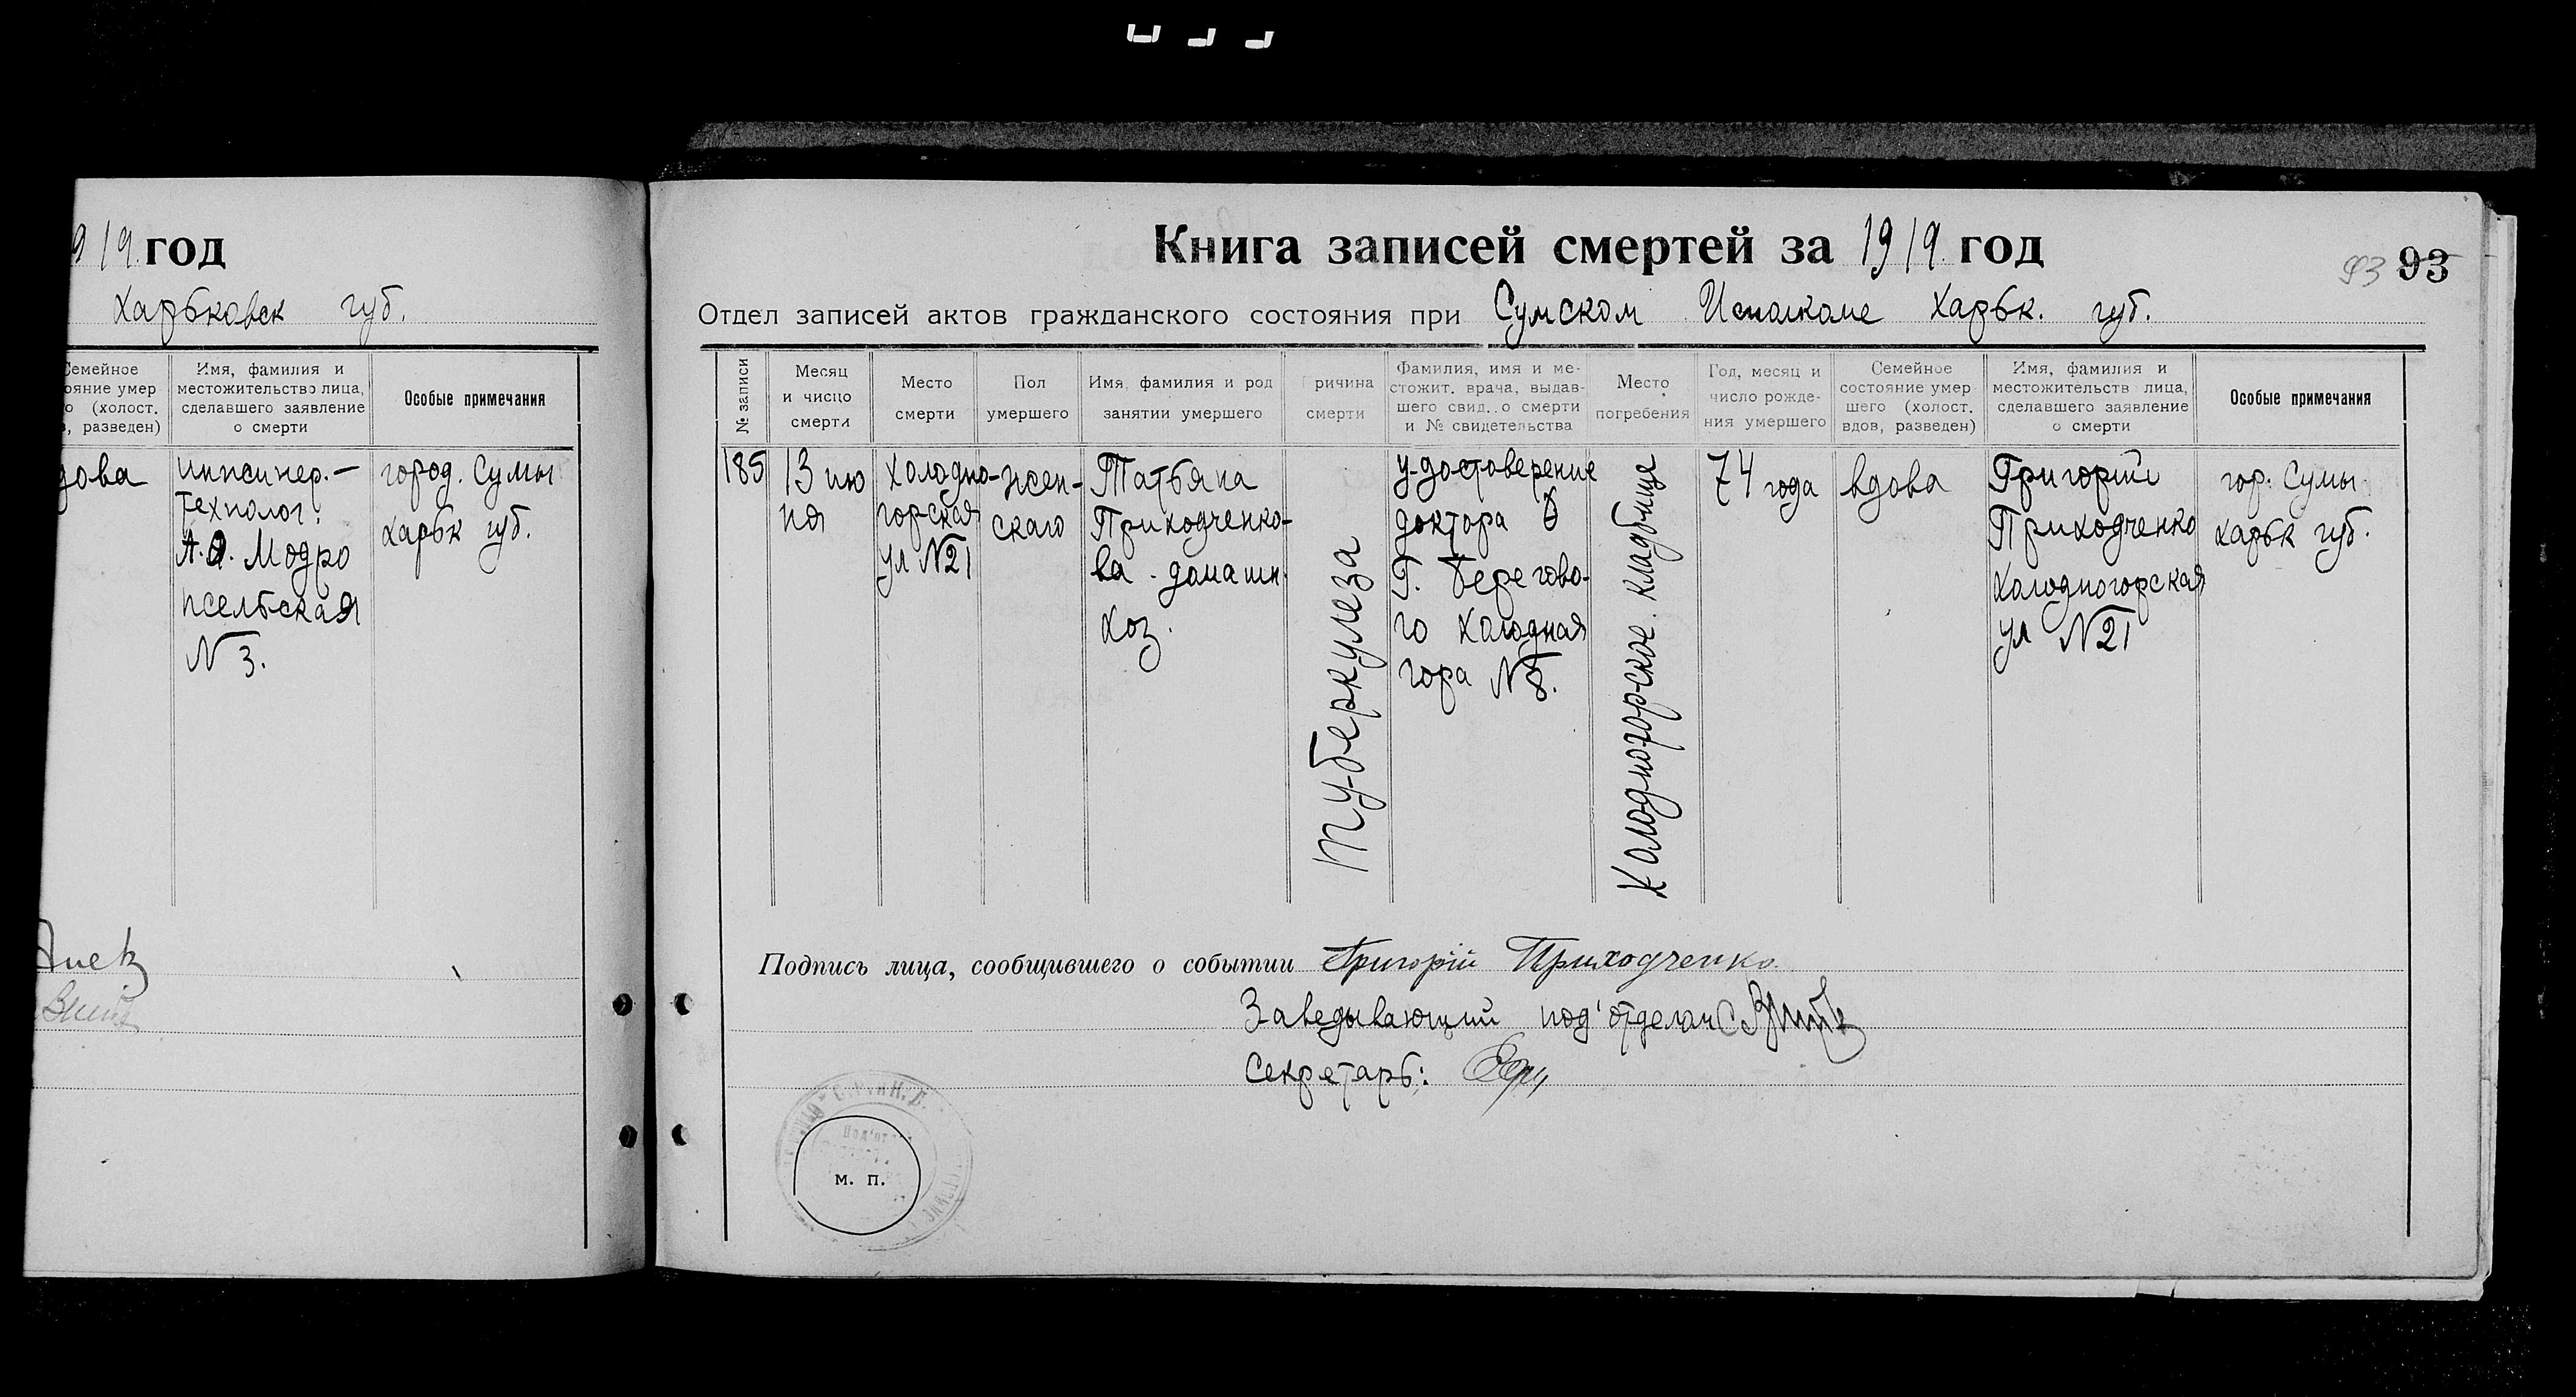 919 год
Харьковск губ.
Семейное
ояние умер
о (холост.
в, разведен)
Имя, фамилия и
местожительство лица,
сделавшего заявление
о смерти
Особые примечания
дова
инженер.-
технолог.
А. Модро
псельская
N 3.
город. Сумы
харьк губ.
Книга записей смертей за 1919 год
93 93
Отдел записей актов гражданского состояния при Сумском Исполкоме Харьк. губ.
№ записи
Месяц
и число
смерти
Место
смерти
Пол
умершего
Имя, фамилия и род
занятии умершего
Причина
смерти
Фамилия, имя и ме-
стожит. врача, выдав-
шего свид. о смерти
и № свидетельства
Место
погребения
Год, месяц и
число рожде-
ния умершего
Семейное
состояние умер
шего (холост.
вдов, разведен)
Имя, фамилия и
местожительств лица,
сделавшего заявление
о смерти
Особые примечания
185
13 ию
ня
Холодно-
горская
ул N21
жен-
скаго
Татьяна
Приходченко-
ва - домашн.
хоз.
Туберкулеза
удостоверение
доктора
Г. Берегово-
го Холодная
гора N 8.
Холодногорское кладбище
74 года
вдова
Григорий
Приходченко
Холодногорская
ул N21
гор. Сумы
харьк губ.
Подпись лица, сообщившего о событии Григорій Приходченко.
Заведывающий под'отделом
Секретарь:
м. п.